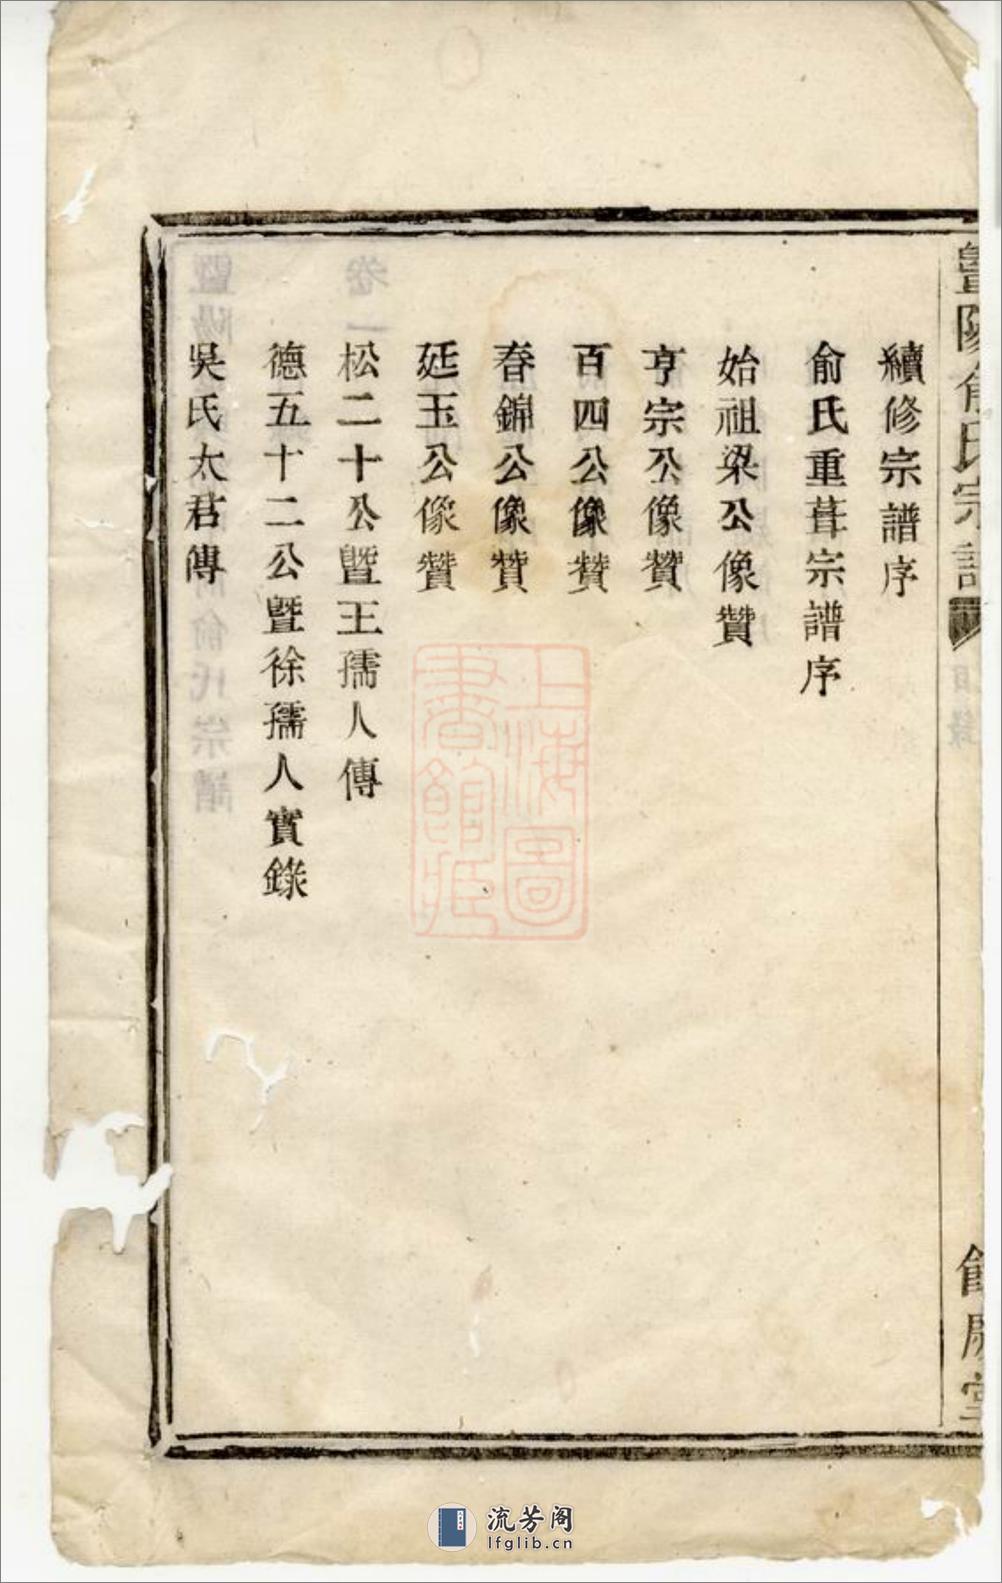 暨陽俞氏宗譜
續修宗譜序
俞氏重葺宗譜序
始祖梁公像贊
亨宗公像贊
百四公像贊
春錦公像贊
廷玉公像贊
松二十公暨王孺人傳
德五十二公暨徐孺人實錄
吳氏太君傳
上海圖
書館藏
流芳阁
lfglib.cn